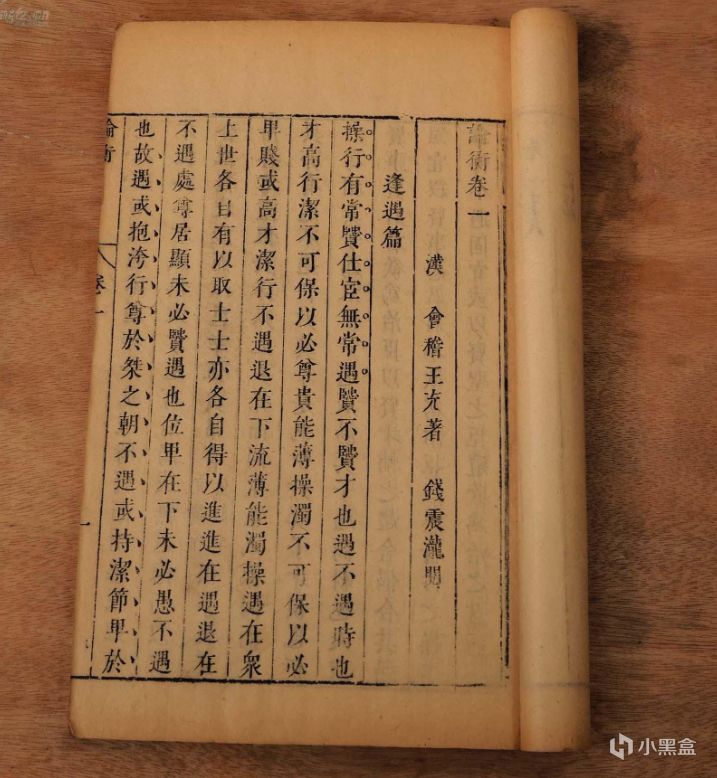 論衡卷一
漢 會稽王充著 錢震瀧閱
逢遇篇
操行有常贒仕宦無常遇贒不贒才也遇不遇時也
才高行潔不可保以必尊貴能薄操濁不可保以必
卑賤或高才潔行不遇退在下流薄能濁操遇在衆
上世各自有以取士士亦各自得以進進在遇退在
不遇處尊居顯未必贒遇也位卑在下未必愚不遇
也故遇或抱洿行尊於桀之朝不遇或持潔節卑於
論衡 卷一 一
小黑盒